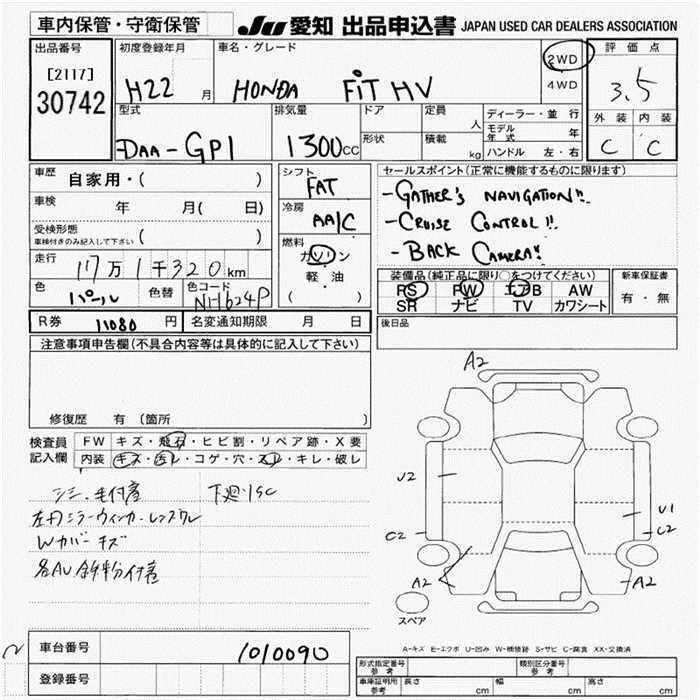 車内保管・守衛保管 JU 愛知 出品申込書 JAPAN USED CAR DEALERS ASSOCIATION
出品番号
[2117]
30742
初度登録年月
H22 月
車名・グレード
HONDA FiT HV
2WD
4WD
評価点
3.5
外装 内装
C C
型式
DAA-GP1
排気量
1300cc
ドア
形状
定員
人
積載
kg
ディーラー・並行
モデル年式 年
ハンドル 左・右
車歴
自家用・( )
車検 年 月( 日)
受検形態
車検付きのみ記入して下さい ( )
走行
11万1千320km
色
パール
色替
色コード
NH624P
シフト
FAT
冷房
AA/C
燃料
ガソリン
軽・油
( )
セールスポイント(正常に機能するものに限ります)
-GATHER'S NAVIGATION!!
-CRUISE CONTROL!!
-BACK CAMERA!!
装備品(純正品に限り○をつけてください)
RS PW エアB AW
SR ナビ TV カワシート
新車保証書
有・無
R券 11080 円 名変通知期限 月 日
後日品
注意事項申告欄(不具合内容等は具体的に記入して下さい)
修復歴 有(箇所 )
検査員
記入欄
FW キズ・飛石・ヒビ割・リペア跡・X要
内装 キズ・汚レ・コゲ・穴・スレ・キレ・破レ
シミ・毛付着 下廻りSC
左右ミラーウィンカーレンズワレ
Wカバーキズ
A2
U2
C2
A2
U1
C2
A2
スペア
A-キズ E-エクボ U-凹み W-補修跡 S-サビ C-腐食 XX-交換済
車台番号 1010090
登録番号
型式指定番号
参考
類別区分番号
参考
車庫証明用
参考
長さ cm 幅 cm 高さ cm